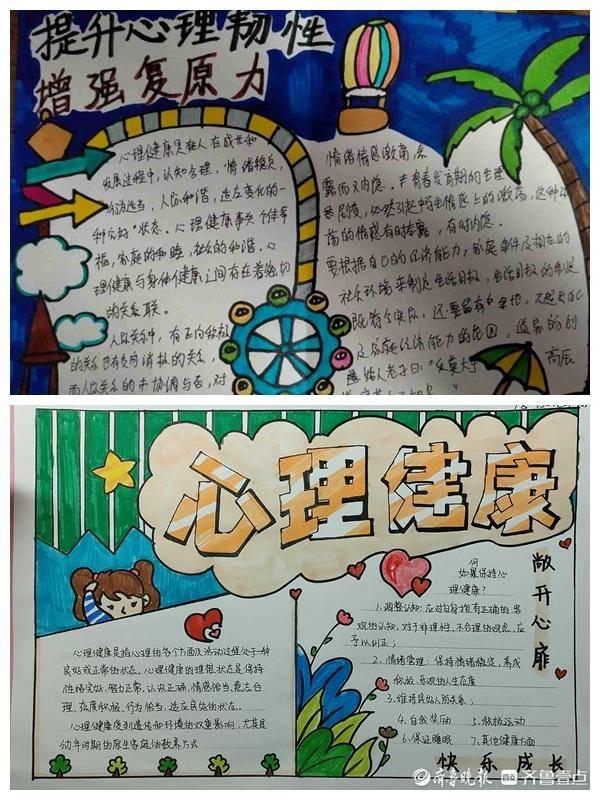 提升心理韧性
增强复原力
心理健康是指人在成长和
发展过程中,认知合理,情绪稳定,
行为适当,人际和谐,适应变化的一
种完好状态。心理健康事关个体幸
福,家庭的和睦,社会的和谐。心
理健康与身体健康之间存在着密切
的关系联。
人际关系中,有正向积极
的关系也有负向消极的关系,
而人际关系的协调与否,对
情绪情感激荡
露而又内隐。青春发育期的生理
剧变,必然引起中学生情感上的激荡,这种
荡的情感有时表露,有时内隐。
要根据自己的经济能力,家庭条件及相应的
社会环境来制定生活目标,生活目标的制定
既符合实际,还要留有余地,不超出自己
及家庭经济能力的范围,道家的创
始人老子曰:
高辰
心理健康
心理健康是指心理的各个方面及活动过程处于一种
良好或正常的状态。心理健康的理想状态是保持
性格完好、智力正常、认识正确、情感恰当、意志合
理、态度积极、行为恰当、适应良好的状态。
心理健康受到遗传和环境的双重影响,尤其是
幼年时期的原生家庭的教养方式
何
如果保持心
理健康?
1.调整认知:应对自身抱有正确的、客
观的认知,对于非理性、不合理的观念,应
予以纠正;
2、情绪管理:保持情绪稳定,养成
积极、乐观的人生态度
3.维持良好人际关系;
4.自我奖励 5.积极运动
6.保证睡眠 7.其他健康方面
敞开心扉
快乐成长
齐鲁晚报 齐鲁壹点